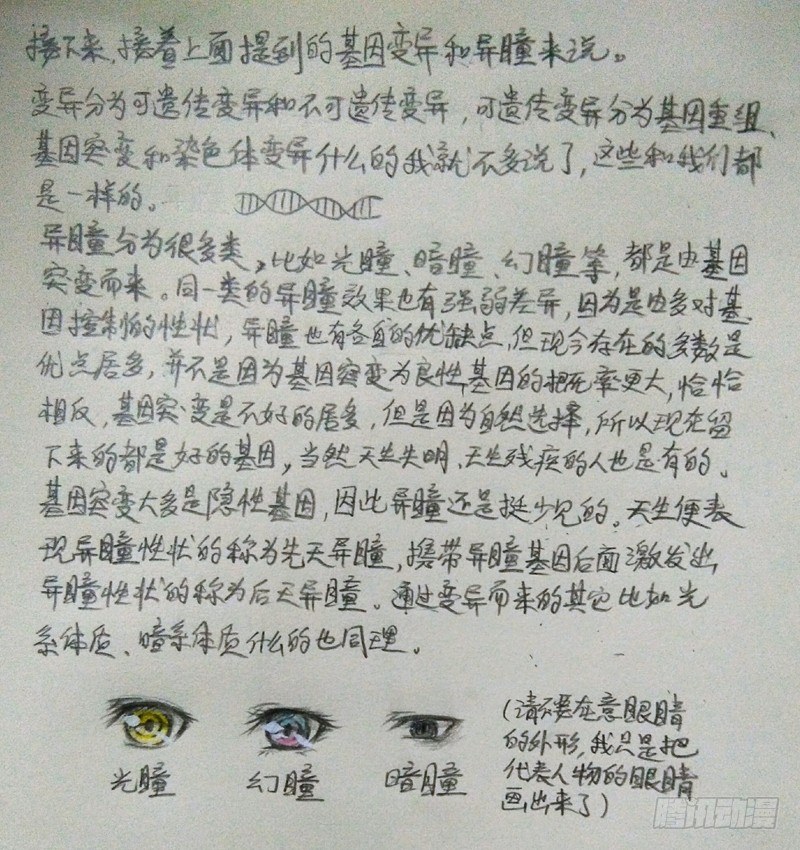 接下来,接着上面提到的基因变异和异瞳来说。
变异分为可遗传变异和不可遗传变异,可遗传变异分为基因重组、
基因突变和染色体变异什么的我就不多说了,这些和我们都
是一样的。
异瞳分为很多类,比如光瞳、暗瞳、幻瞳等,都是由基因
突变而来。同一类的异瞳效果也有强弱差异,因为是由多对基
因控制的性状,异瞳也有各自的优缺点,但现今存在的多数是
优点居多,并不是因为基因突变为良性基因的概率更大,恰恰
相反,基因突变是不好的居多,但是因为自然选择,所以现在留
下来的都是好的基因,当然天生失明、天生残疾的人也是有的。
基因突变大多是隐性基因,因此异瞳还是挺少见的。天生便表
现异瞳性状的称为先天异瞳,携带异瞳基因后面激发出
异瞳性状的称为后天异瞳。通过变异而来的其它比如光
系体质、暗系体质什么的也同理。
光瞳 幻瞳 暗瞳
(请不要在意眼睛
的外形,我只是把
代表人物的眼睛
画出来了)
腾讯动漫